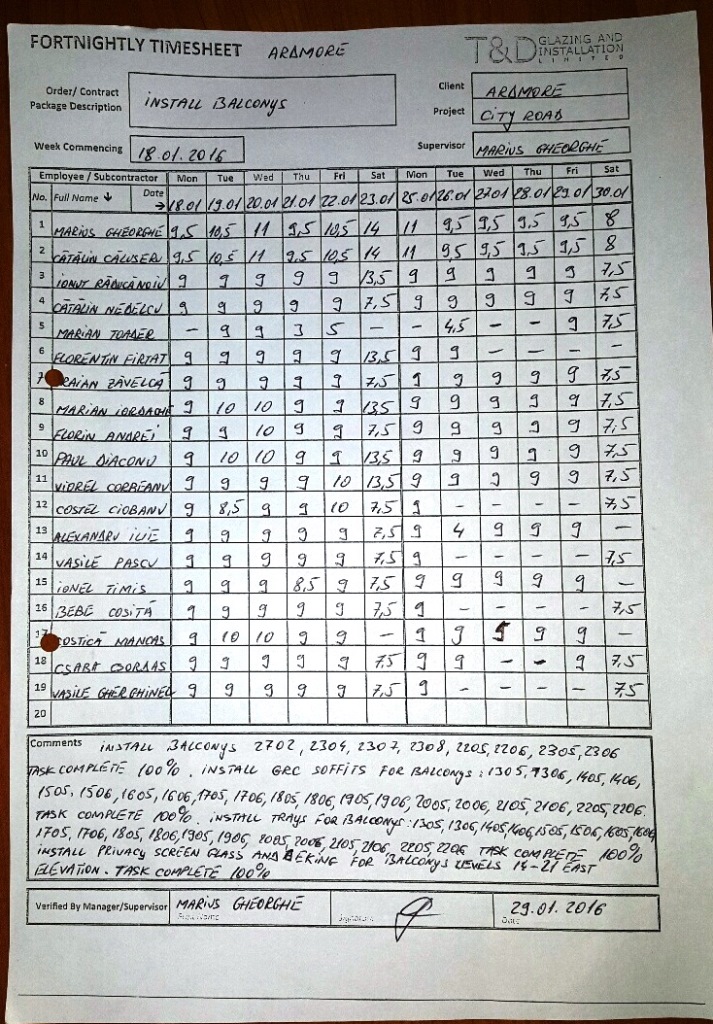 FORTNIGHTLY TIMESHEET ARDMORE
T&D GLAZING AND INSTALLATION LIMITED
Order/ Contract Package Description INSTALL BALCONYS
Client ARDMORE
Project CITY ROAD
Week Commencing 18.01.2016
Supervisor MARIUS GHEORGHE
Employee / Subcontractor Mon Tue Wed Thu Fri Sat Mon Tue Wed Thu Fri Sat
No. Full Name ↓ Date → 18.01 19.01 20.01 21.01 22.01 23.01 25.01 26.01 27.01 28.01 29.01 30.01
1 MARIUS GHEORGHE 9,5 10,5 11 9,5 10,5 14 11 9,5 9,5 9,5 9,5 8
2 CĂTĂLIN CĂLUSERU 9,5 10,5 11 9,5 10,5 14 11 9,5 9,5 9,5 9,5 8
3 IONUT RĂDUCANOIU 9 9 9 9 9 13,5 9 9 9 9 9 7,5
4 CĂTĂLIN NEDELCU 9 9 9 9 9 7,5 9 9 9 9 9 7,5
5 MARIAN TOADER – 9 9 3 5 – – 4,5 – – 9 7,5
6 FLORENTIN FIRTAT 9 9 9 9 9 13,5 9 9 – – – –
7 RAIAN ZĂVELCĂ 9 9 9 9 9 7,5 9 9 9 9 9 7,5
8 MARIAN IORDACHE 9 10 10 9 9 13,5 9 9 9 9 9 7,5
9 FLORIN ANDREI 9 9 10 9 9 7,5 9 9 9 9 9 7,5
10 PAUL DIACONU 9 10 10 9 9 13,5 9 9 9 9 9 7,5
11 VIOREL CORBEANU 9 9 9 9 10 13,5 9 9 9 9 9 7,5
12 COSTEL CIOBANU 9 8,5 9 9 10 7,5 9 – – – – 7,5
13 ALEXANDRU ILIE 9 9 9 9 9 7,5 9 4 9 9 9 –
14 VASILE PASCU 9 9 9 9 9 7,5 9 – – – – 7,5
15 IONEL TIMIS 9 9 9 8,5 9 7,5 9 9 9 9 9 –
16 BEBE COSITĂ 9 9 9 9 9 7,5 9 – – – – 7,5
17 COSTICĂ MANDAS 9 10 10 9 9 – 9 9 9 9 9 –
18 CSABA BORDAS 9 9 9 9 9 7,5 9 9 – – 9 7,5
19 VASILE GHERGHINEL 9 9 9 9 9 7,5 9 – – – – 7,5
20
Comments INSTALL BALCONYS 2702, 2304, 2307, 2308, 2205, 2206, 2305, 2306
TASK COMPLETE 100%. INSTALL GRC SOFFITS FOR BALCONYS: 1305, 1306, 1405, 1406,
1505, 1506, 1605, 1606, 1705, 1706, 1805, 1806, 1905, 1906, 2005, 2006, 2105, 2106, 2205, 2206.
TASK COMPLETE 100%. INSTALL TRAYS FOR BALCONYS: 1305, 1306, 1405, 1406, 1505, 1506, 1605, 1606
1705, 1706, 1805, 1806, 1905, 1906, 2005, 2006, 2105, 2106, 2205, 2206 TASK COMPLETE 100%
INSTALL PRIVACY SCREEN GLASS AND DEKING FOR BALCONYS LEVELS 14-21 EAST
ELEVATION. TASK COMPLETE 100%
Verified By Manager/Supervisor MARIUS GHEORGHE 29.01.2016
Print Name Signature Date